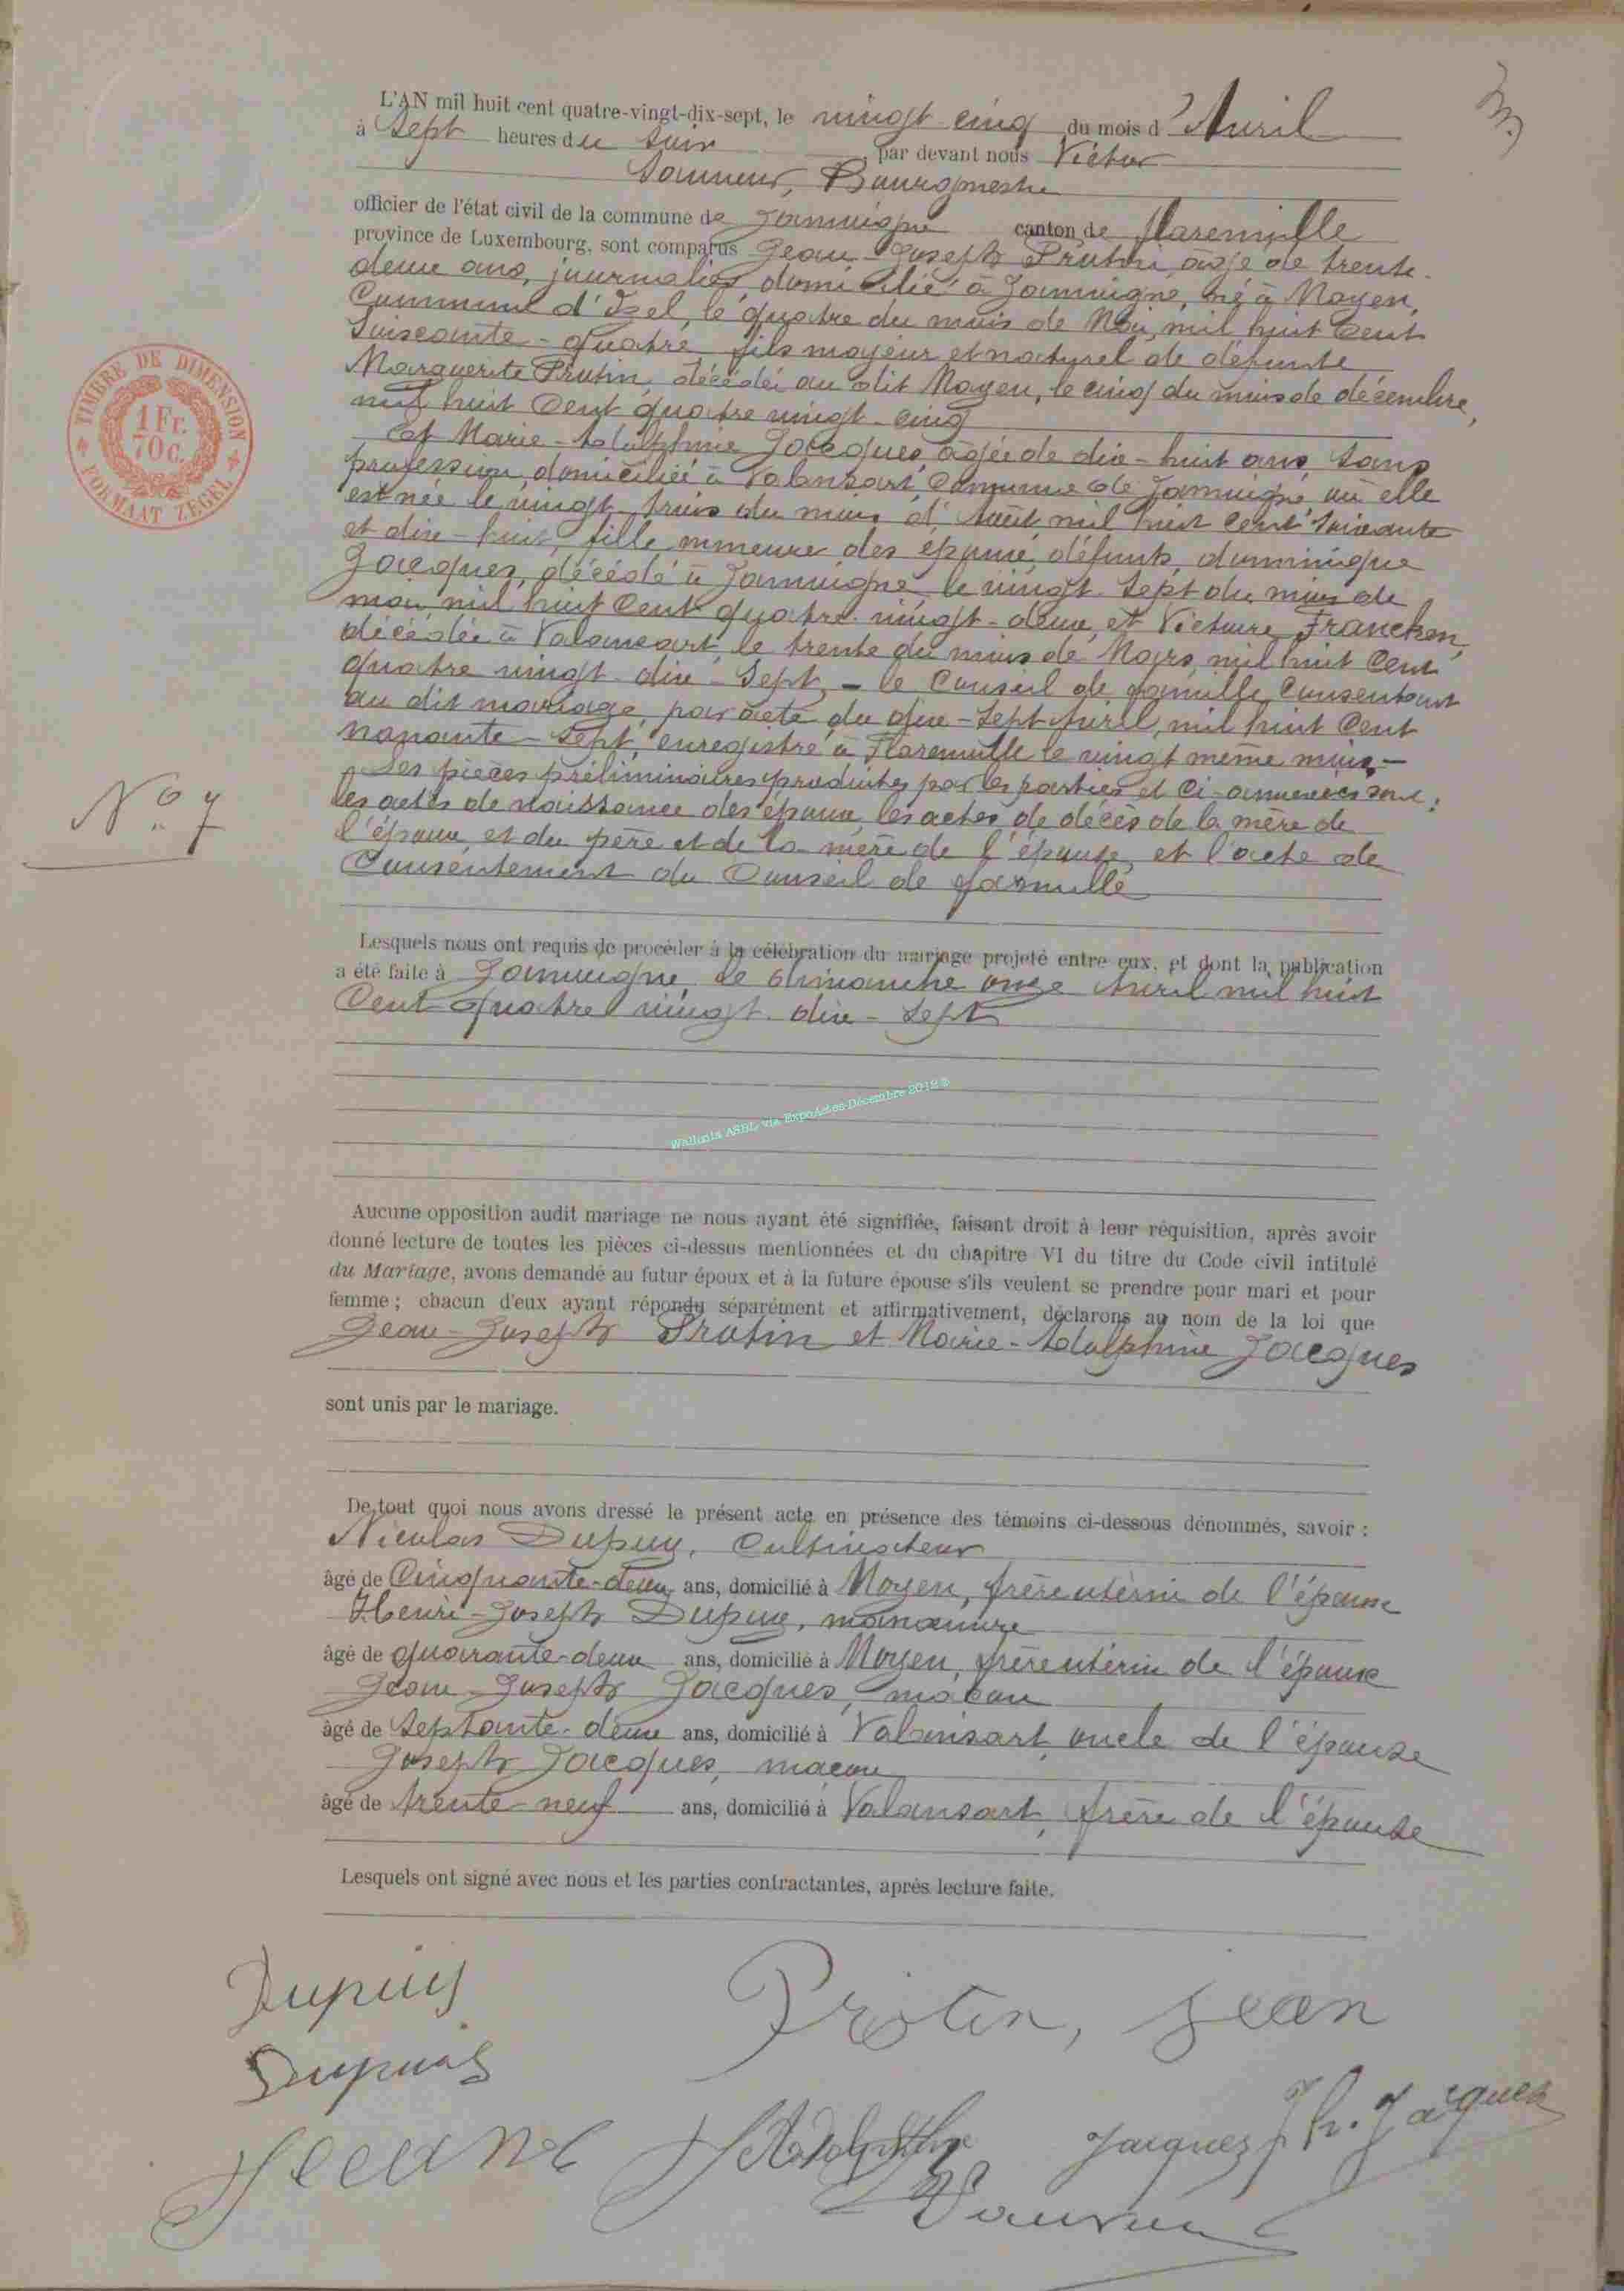 L'AN mil huit cent quatre-vingt-dix-sept, le vingt cinq du mois d'Avril
à Sept heures du soir par devant nous Victor
Bourgmestre
officier de l'état civil de la commune de Jamoigne canton de Florenville
province de Luxembourg, sont comparus Jean-Joseph Protin, âgé de trente-
deux ans, journalier, domicilié à Jamoigne, né à Moyen,
Commune d'Izel, le quatre du mois de Mai, mil huit Cent
Soixante-quatre fils majeur et naturel de défunte
Marguerite Protin, décédée au dit Moyen, le cinq du mois de décembre,
mil huit Cent quatre vingt-cinq
Et Marie-Adolphine Jacques, âgée de dix-huit ans, Sans
profession, domiciliée à Valansart, Commune de Jamoigne où elle
est née le vingt-trois du mois d'Août mil huit cent soixante
et dix-huit, fille mineure des époux défunts, dominique
Jacques, décédé à Jamoigne le vingt-Sept du mois de
mai mil huit Cent quatre-vingt-deux, et Victoire Francken,
décédée à Valansart, le trente du mois de Mars mil huit Cent
quatre vingt-dix-Sept, - le Conseil de famille Consentant
au dit mariage, par acte du dix-Sept Avril, mil huit Cent
nonante-Sept, enregistré à Florenville le vingt même mois.-
Les pièces préliminaires produites par les parties et Ci-annexées sont:
les actes de naissance des époux, les actes de décès de la mère de
l'époux, et du père et de la mère de l'épouse, et l'acte de
Consentement du Conseil de famille
N° 7
Lesquels nous ont requis de procéder à la célébration du mariage projeté entre eux, et dont la publication
a été faite à Jamoigne, le dimanche onze Avril mil huit
Cent quatre vingt-dix-Sept
Wallonia ASBL, via ExpoActes-Décembre 2012 ®
Aucune opposition audit mariage ne nous ayant été signifiée, faisant droit à leur réquisition, après avoir
donné lecture de toutes les pièces ci-dessus mentionnées et du chapitre VI du titre du Code civil intitulé
du Mariage, avons demandé au futur époux et à la future épouse s'ils veulent se prendre pour mari et pour
femme ; chacun d'eux ayant répondu séparément et affirmativement, déclarons au nom de la loi que
Jean-Joseph Protin et Marie-Adolphine Jacques
sont unis par le mariage.
De tout quoi nous avons dressé le présent acte en présence des témoins ci-dessous dénommés, savoir :
Nicolas Dupuy, Cultivateur
âgé de Cinquante-deux ans, domicilié à Moyen, frère utérin de l'épouse
Henri-Joseph Dupuy, manœuvre
âgé de quarante-deux ans, domicilié à Moyen, frère utérin de l'épouse
Jean-Joseph Jacques, maçon
âgé de Septante-deux ans, domicilié à Valansart, oncle de l'épouse
Joseph Jacques, maçon
âgé de trente-neuf ans, domicilié à Valansart, frère de l'épouse
Lesquels ont signé avec nous et les parties contractantes, après lecture faite.
Dupuis
Protin, Jean
Dupuis
Jacques Jh. Jacques
TIMBRE DE DIMENSION
1 Fr.
70 C.
FORMAAT ZEGEL